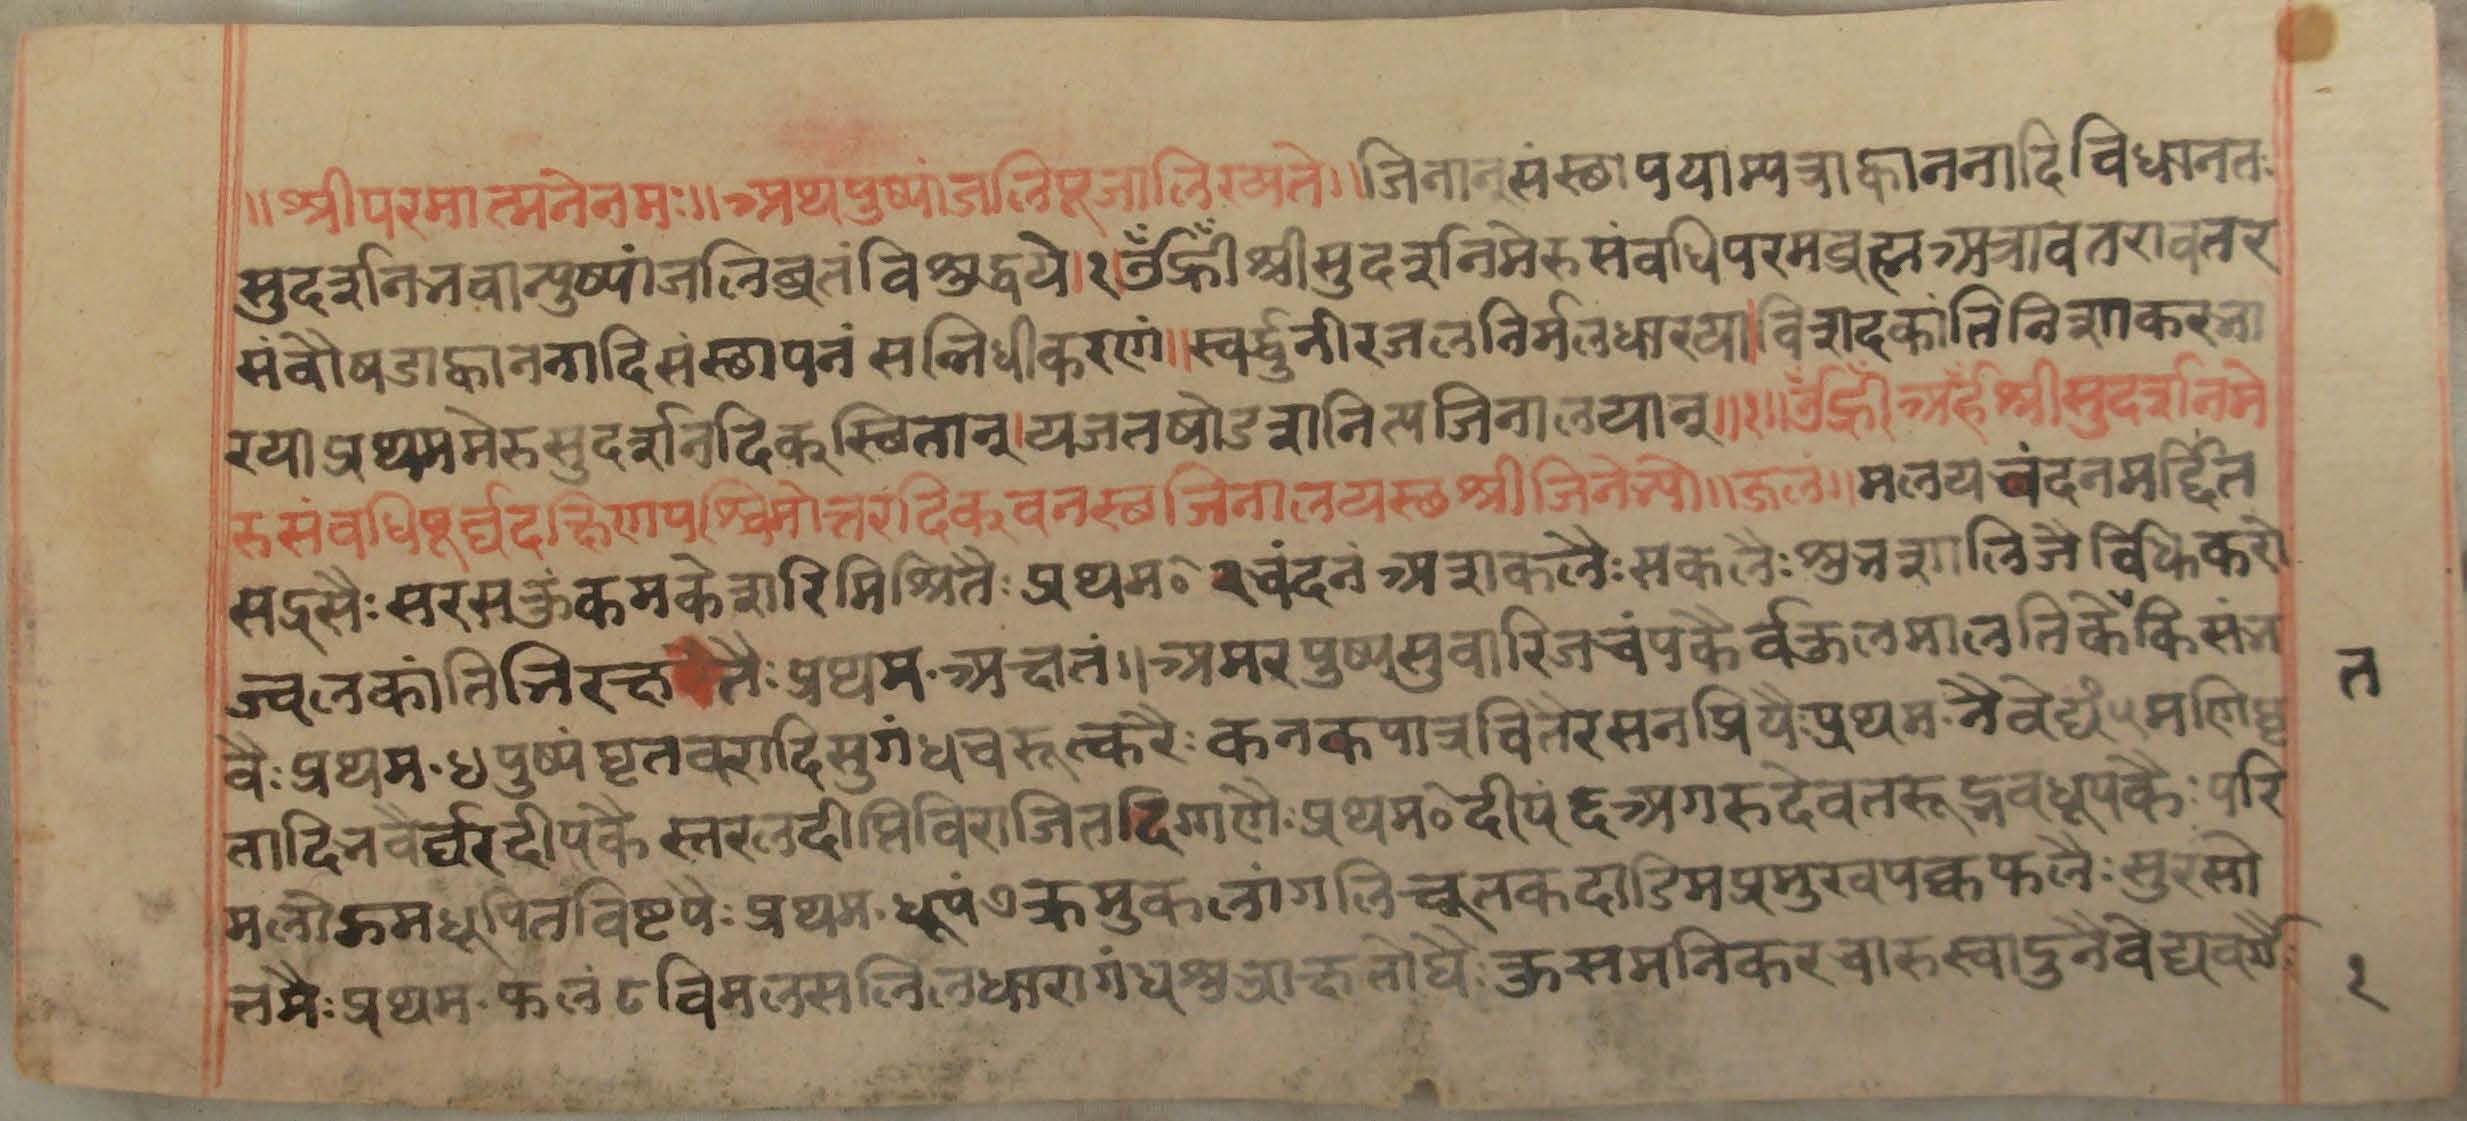 ॥श्रीपरमात्मनेनमः॥अथपुष्पांजलिपूजालिख्यते॥जिनान्संस्छापयाम्यत्राह्वाननादिविधानतः
सुदर्शनभवान्पुष्पांजलिव्रतंविशुद्धये।१।ॐह्रींश्रीसुदर्शनमेरुसंवधिपरमव्रह्मअत्रावतरावतर
संवौषडाह्वाननादिसंस्छापनंसन्निधीकरणं॥स्वर्द्धुनीरजलनिर्मलधारया।विशदकांतिनिशाकरभा
रयाप्रथममेरुसुदर्शनदिक्स्थितान्।यजतषोडशनित्यजिनालयान्॥१॥ॐह्रींअर्हंश्रीसुदर्शनमे
रुसंवधिपूर्व्वदक्षिणपश्चिमोत्तरदिक्वनस्छजिनालयस्छश्रीजिनेभ्यो॥जलं॥मलयचंदनमर्द्दित
सद्रसैःसरसकुंकमकेशरिमिश्रितैःप्रथम०२चंदनंअशकलैःसकलैःशुभशालिजैर्विधिकरो
ज्वलकांतिभिरक्षतैःप्रथम॰अक्षतं॥अमरपुष्पसुवारिजचंपकैर्वकुलमालतिकेंकिसंभ
त
वैःप्रथम॰४पुष्पंघृतवरादिसुगंधचरूत्करैःकनकपात्रचितैरसनप्रियैःप्रथम॰नैवेद्यं५मणिघृ
तादिनवैर्व्वरदीपकैस्तरलदीप्तिविराजितदिग्गणैःप्रथम०दीपं६अगरुदेवतरूद्भवधूपकैःपरि
मलोक्रमधूपितविष्टपैःप्रथम॰धूपं७क्रमुकलांगलिचूतकदाडिमप्रमुखपक्वफलैःसुरसो
त्तमैःप्रथम॰फलं८विमलसलिलधारागंधशुभ्राक्षतौघैःकुसमनिकरचारुस्वादुनैवेद्यवर्गैः
१